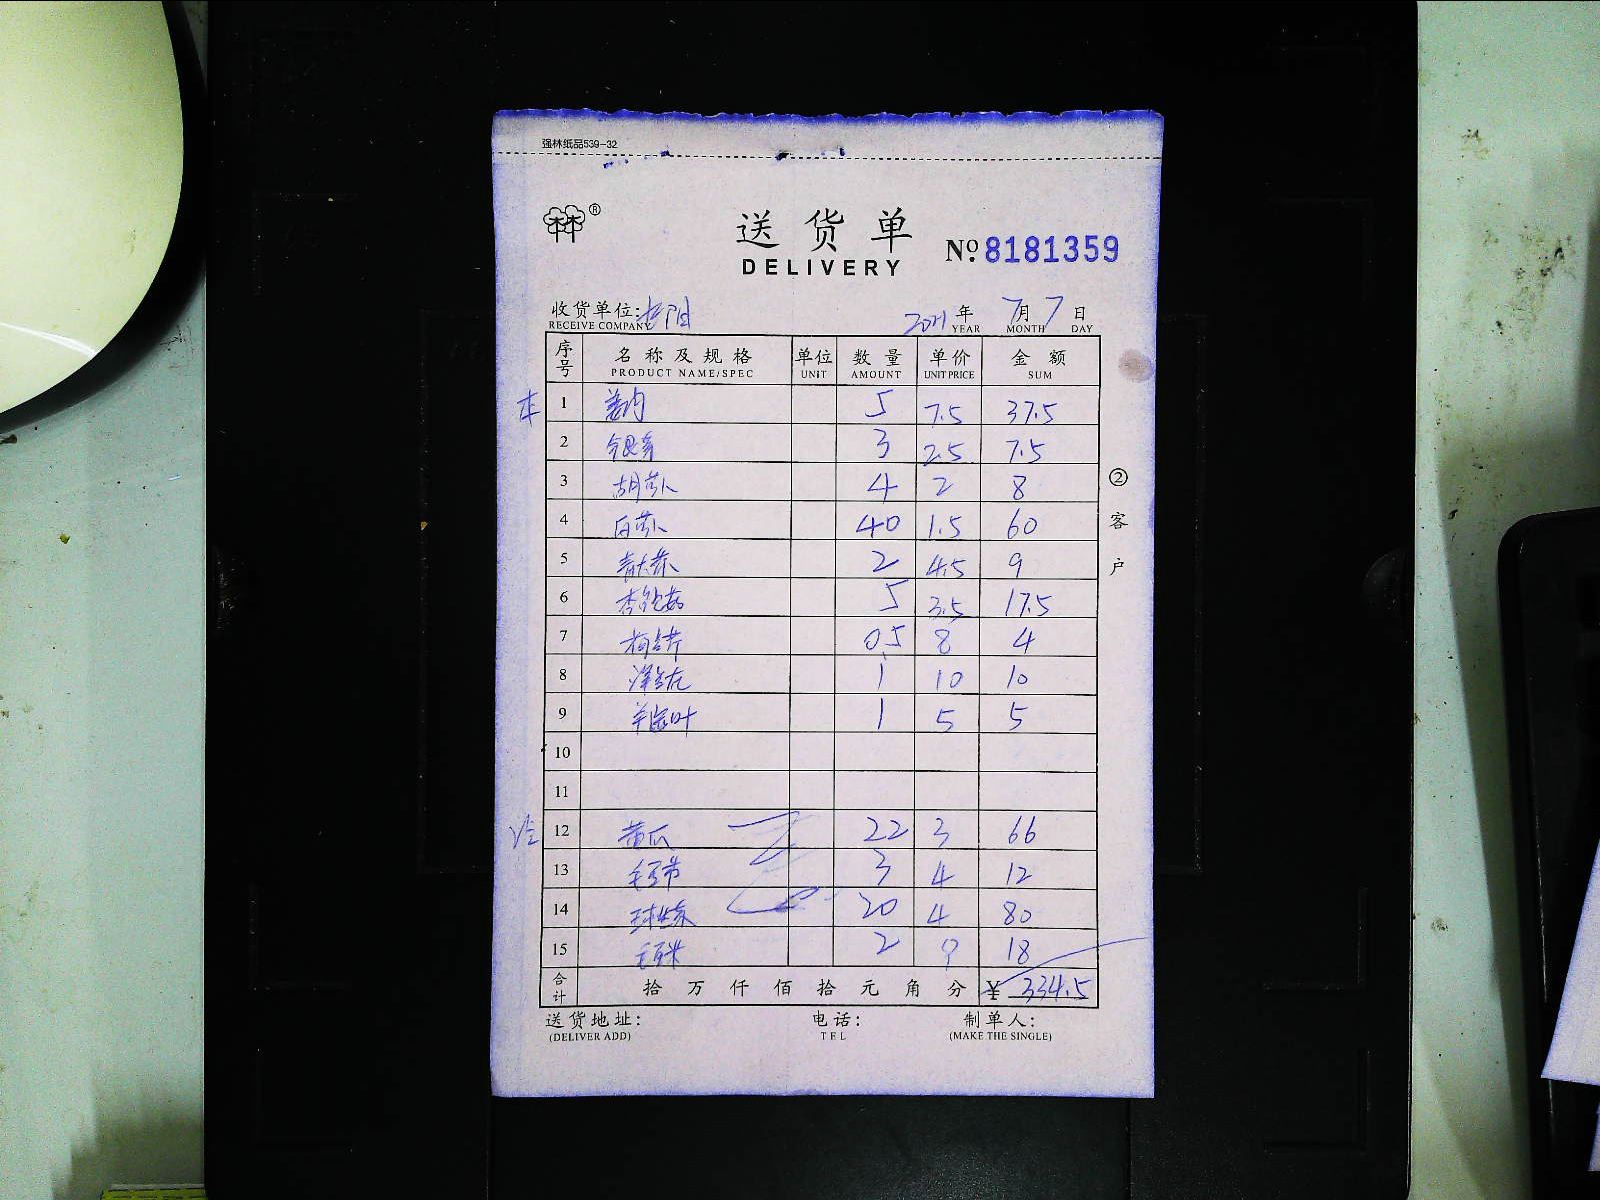 强林纸品539-32
林林®
送货单
DELIVERY
№ 8181359
收货单位:
RECEIVE COMPANY
2021年7月7日
YEAR MONTH DAY
序号 名称及规格 单位 数量 单价 金额
PRODUCT NAME/SPEC UNIT AMOUNT UNIT PRICE SUM
本 1 姜肉 5 7.5 37.5
2 银芽 3 2.5 7.5
3 胡萝卜 4 2 8
4 白萝卜 40 1.5 60
5 2 4.5 9
6 杏鲍菇 5 3.5 17.5
7 0.5 8 4
8 1 10 10
9 1 5 5
10
11
冷 12 黄瓜 22 3 66
13 3 4 12
14 20 4 80
15 2 9 18
合计 拾万仟佰拾元角分 ¥ 334.5
②客户
送货地址: 电话: 制单人:
(DELIVER ADD) TEL (MAKE THE SINGLE)